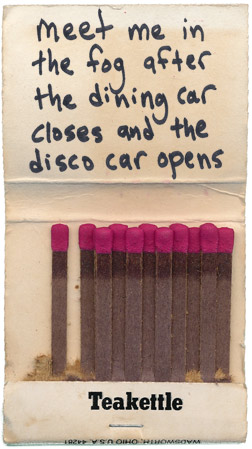 meet me in
the fog after
the dining car
closes and the
disco car opens
Teakettle
WADSWORTH, OHIO U.S.A. 44281